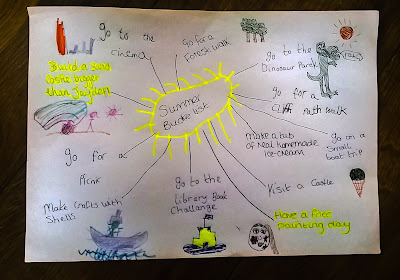 go to the
cinema
go for a
Forest walk
go to the
Dinosaur Park
Build a sand
castle bigger
than Jayden
go for a
Cliff Path walk
Summer
Bucket list
Make a tub
of Real homemade
ice-cream
go on a
Small
boat trip
go for a
Picnic
Make crafts with
Shells
go to the
Library Book
Challange
Visit a Castle
Have a face
painting day